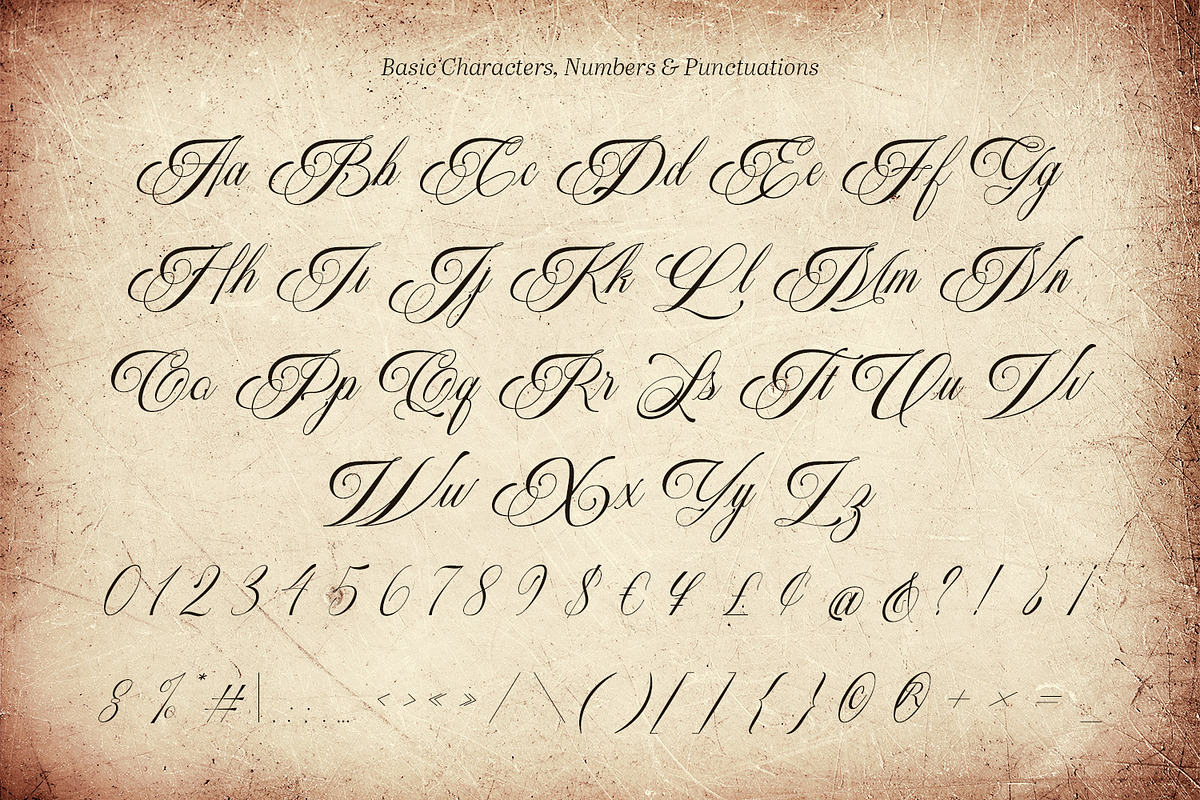 Basic Characters, Numbers & Punctuations
Aa Bb Cc Dd Ee Ff Gg
Hh Ii Jj Kk Ll Mm Nn
Oo Pp Qq Rr Ss Tt Uu Vv
Ww Xx Yy Zz
0 1 2 3 4 5 6 7 8 9 $ € ¥ £ ¢ @ & ? ! ¿ ¡
§ % * # | . : … ‹ › « » / \ ( ) [ ] { } © ® + × = _